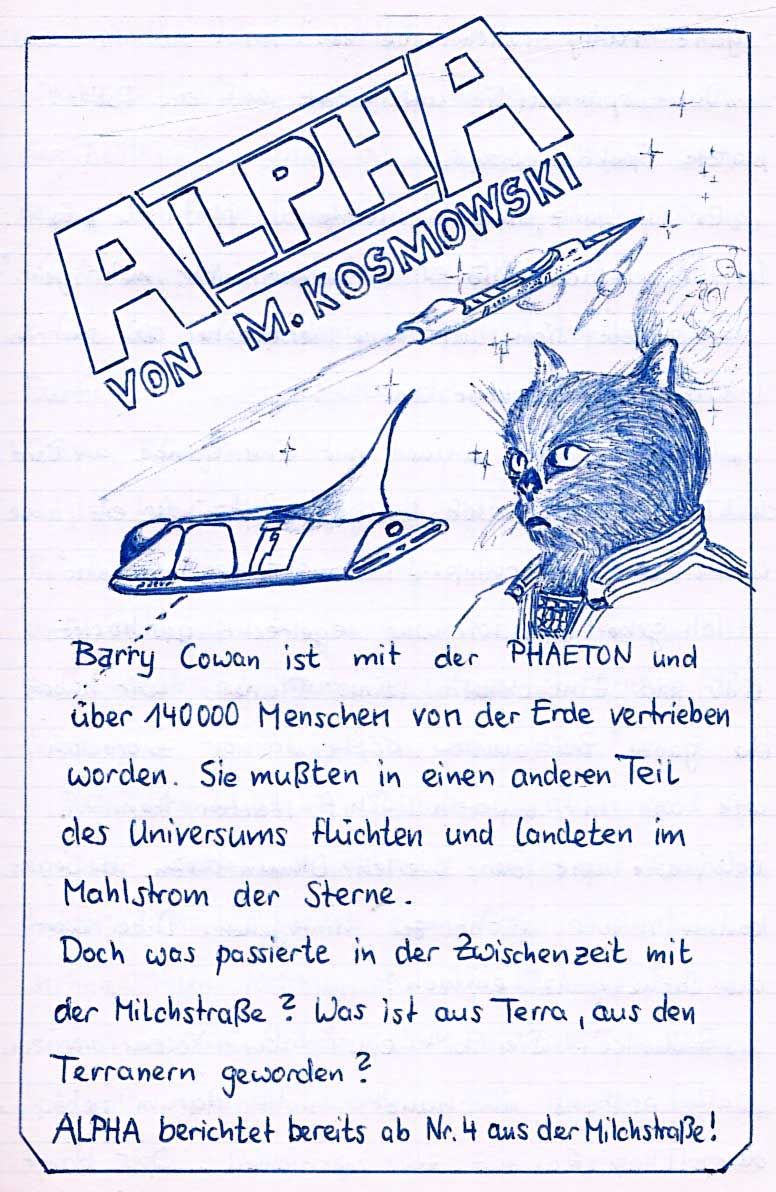 ALPHA
VON M. KOSMOWSKI
Barry Cowan ist mit der PHAETON und
über 140000 Menschen von der Erde vertrieben
worden. Sie mußten in einen anderen Teil
des Universums flüchten und landeten im
Mahlstrom der Sterne.
Doch was passierte in der Zwischenzeit mit
der Milchstraße? Was ist aus Terra, aus den
Terranern geworden?
ALPHA berichtet bereits ab Nr. 4 aus der Milchstraße!